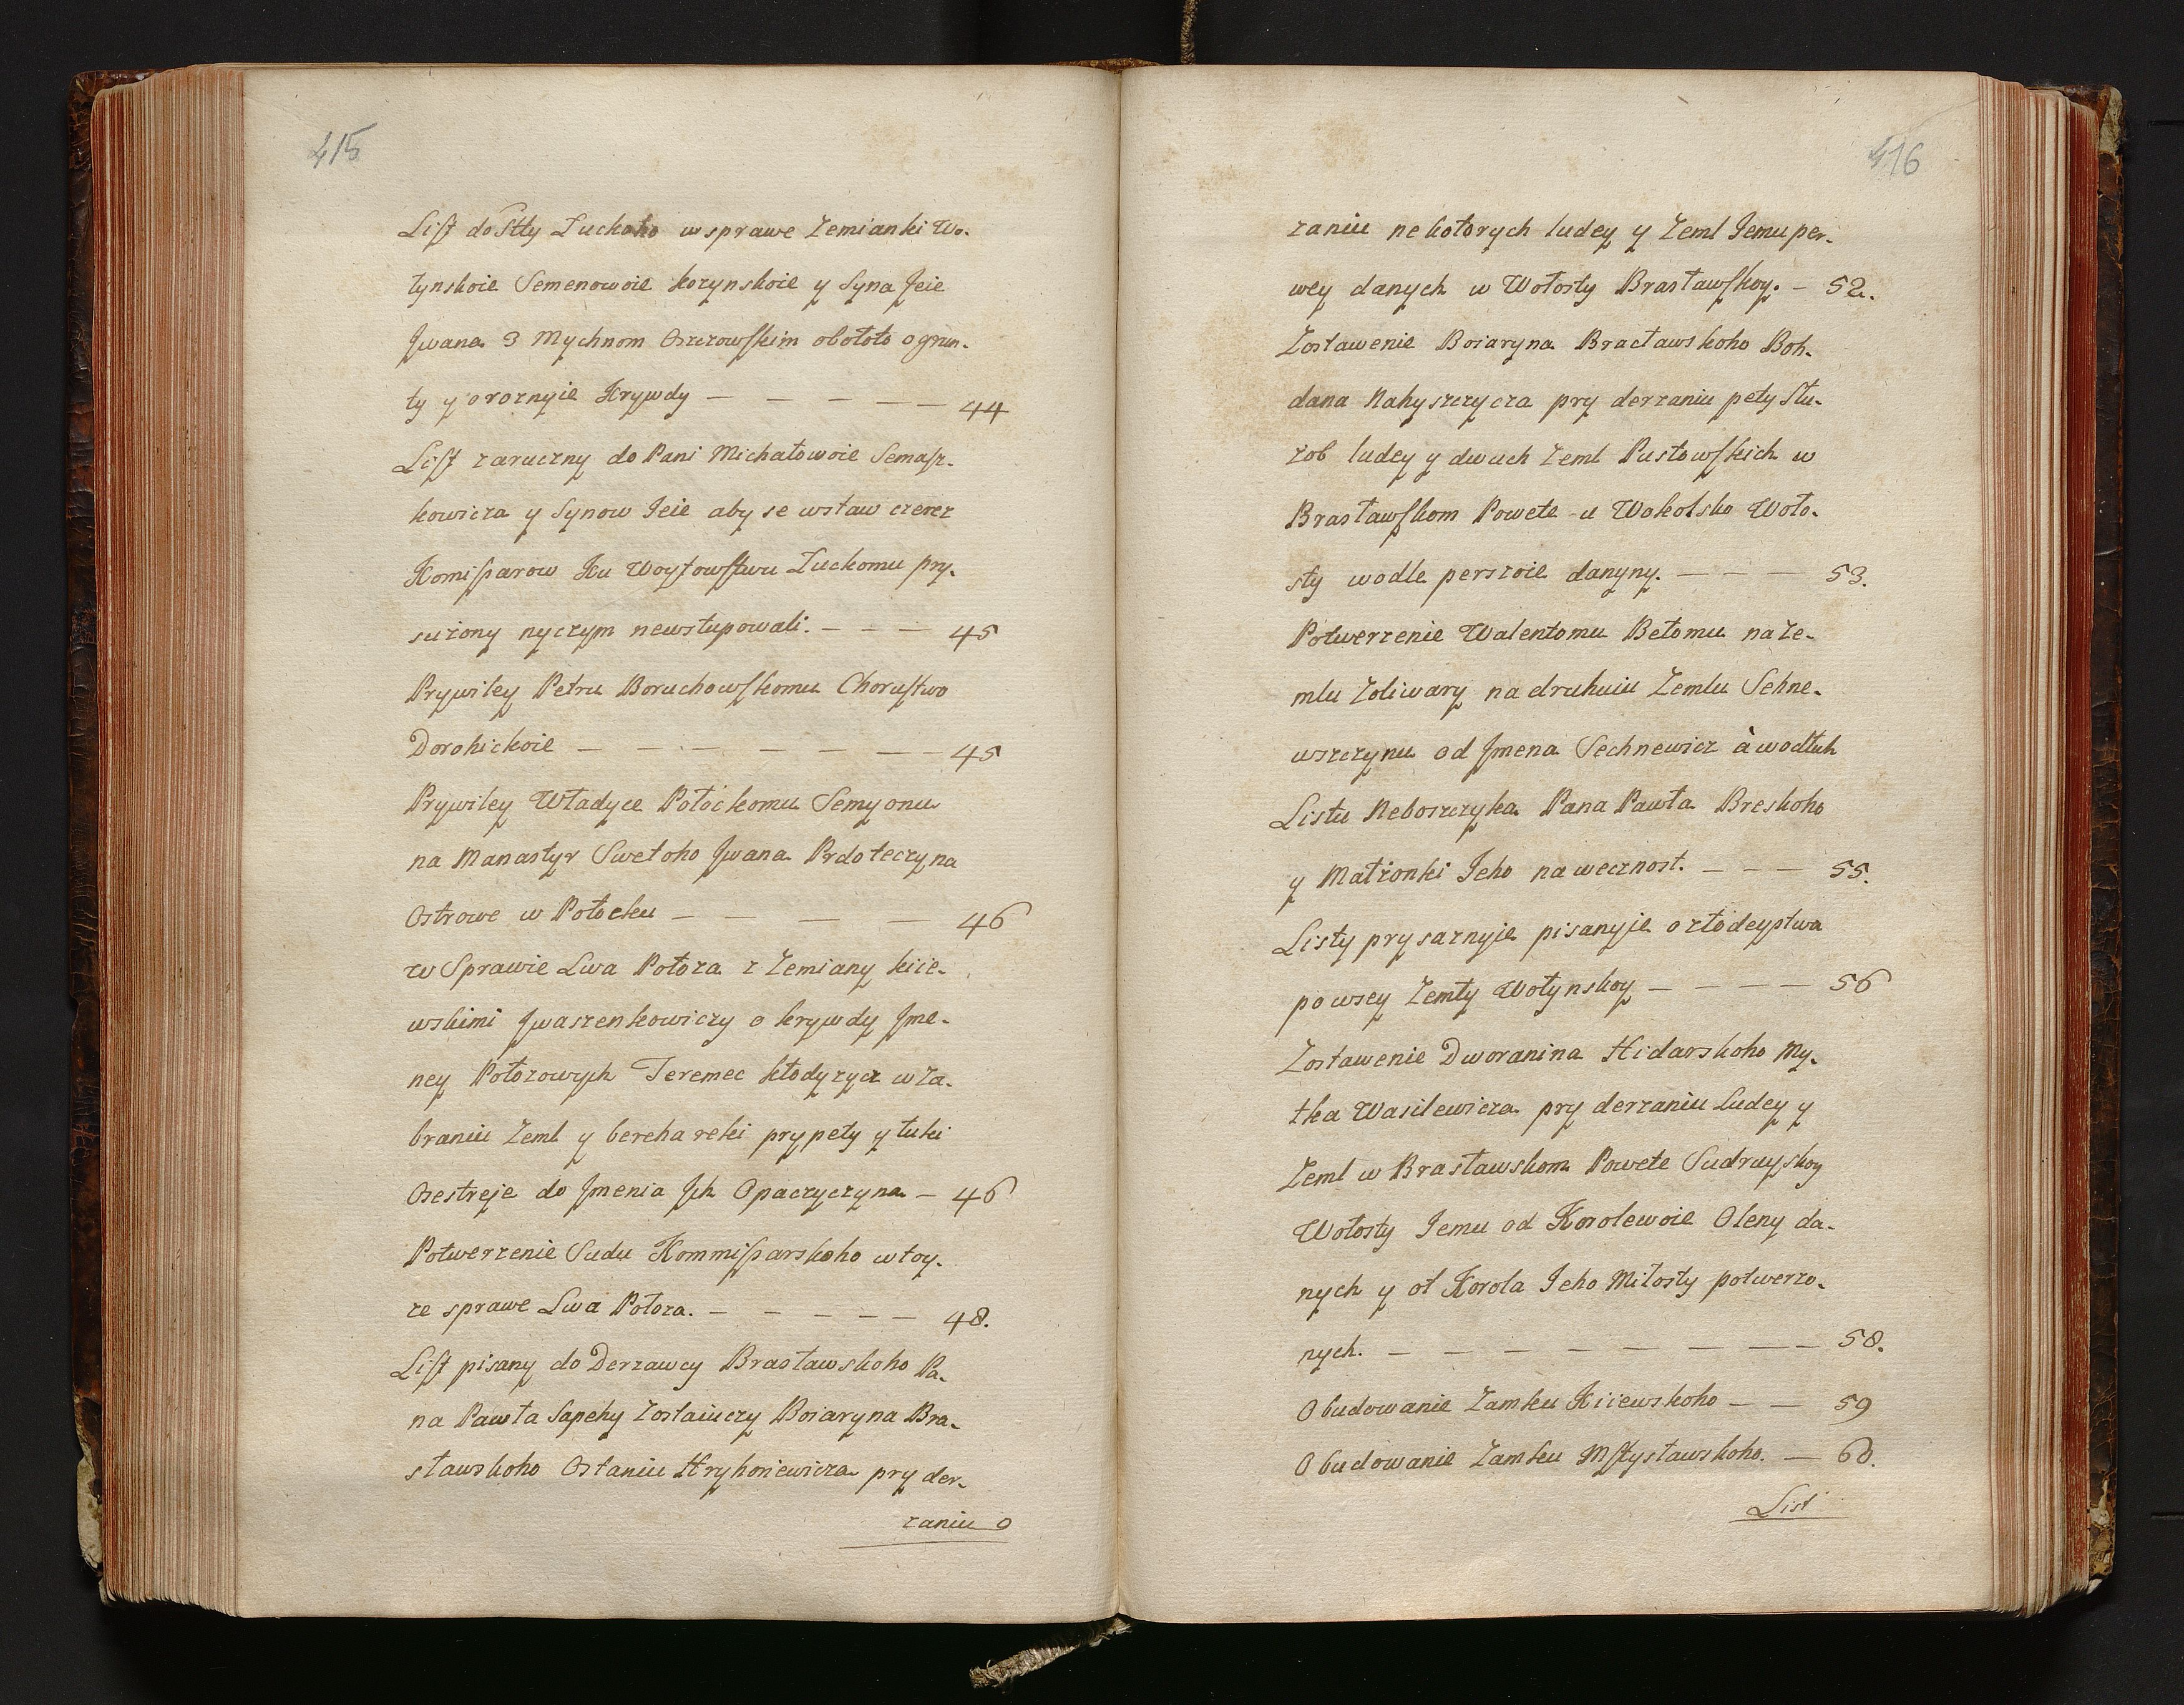 415
List do Stty Łuckoho w sprawe Zemianki Wo-
łynskoie Semenowoie kozynskoie y Syna Jeie
Jwana 3 Mychnom Oszczowskim obołoto ogrun-
ty y oroznyie Krywdy — — — — — 44
List zaruczny do Pani Michałowoie Semasz-
kowicza y Synow Jeie aby se wstaw czerez
Komissarow Ku Woytowstwu Łuckomu pry-
sużony nyczym newstupowali. — — — 45
Prywiley Petru Boruchowskomu Chorustwo
Dorohickoie — — — — — — 45
Prywiley Władyce Połockomu Semyonu
na Manastyr Swetoho Jwana Prdoteczyna
Ostrowe w Połocku — — — — 46
w Sprawie Lwa Połoza z Zemiany kiie-
wskimi Jwaszenkowiczy o krywdy Jme-
ney Połozowych Teremec kłodyzycz wza-
braniu Zeml y bereha reki prypety y łuki
Osestreje do Jmenia Jch Opaczyczyna — 46
Potwerzenie Sudu Kommissarskoho wtoy-
ze sprawe Lwa Połoza. — — — — — 48.
List pisany do Derzawcy Brasławskoho Pa-
na Pawła Sapehy Zostaiuczy Boiaryna Bra-
sławskoho Ostaniu Hryhoriewicza pry der-
zaniu o
416
zaniu nekotorych ludey y Zeml Jemu per-
wey danych w Wołosty Brasławskoy. — 52.
Zostawenie Boiaryna Bracławskoho Boh-
dana Nahyszczycza pry derzaniu pety Słu-
zob ludey y dwuch Zeml Pustowskich w
Brasławskom Powete u Wokolsko Woło-
sty wodle perszoie danyny. — — — 53.
Potwerzenie Walentomu Bełomu naZe-
mlu Zoliwary na druhuiu Zemlu Sehne-
wszczynu od Jmena Sechnewicz à wodłuh
Listu Neboszczyka Pana Pawła Breskoho
y Małżonki Jeho na wecznost. — — — 55.
Listy prysaznyie pisanyje o złodeystwa
powsey Zemły Wołynskoy — — — — 56
Zostawenie Dworanina Hidarskoho My-
tka Wasilewicza pry derzaniu Ludey y
Zeml w Brasławskom Powete Sudruyskoy
Wołosty Jemu od Korolewoie Oleny da-
nych y ot Korola Jeho Miłosty potwerzo-
nych. — — — — — — — — 58.
Obudowanie Zamku Kiiewskoho — — 59
Obudowanie Zamku Mstysławskoho. — 60.
List